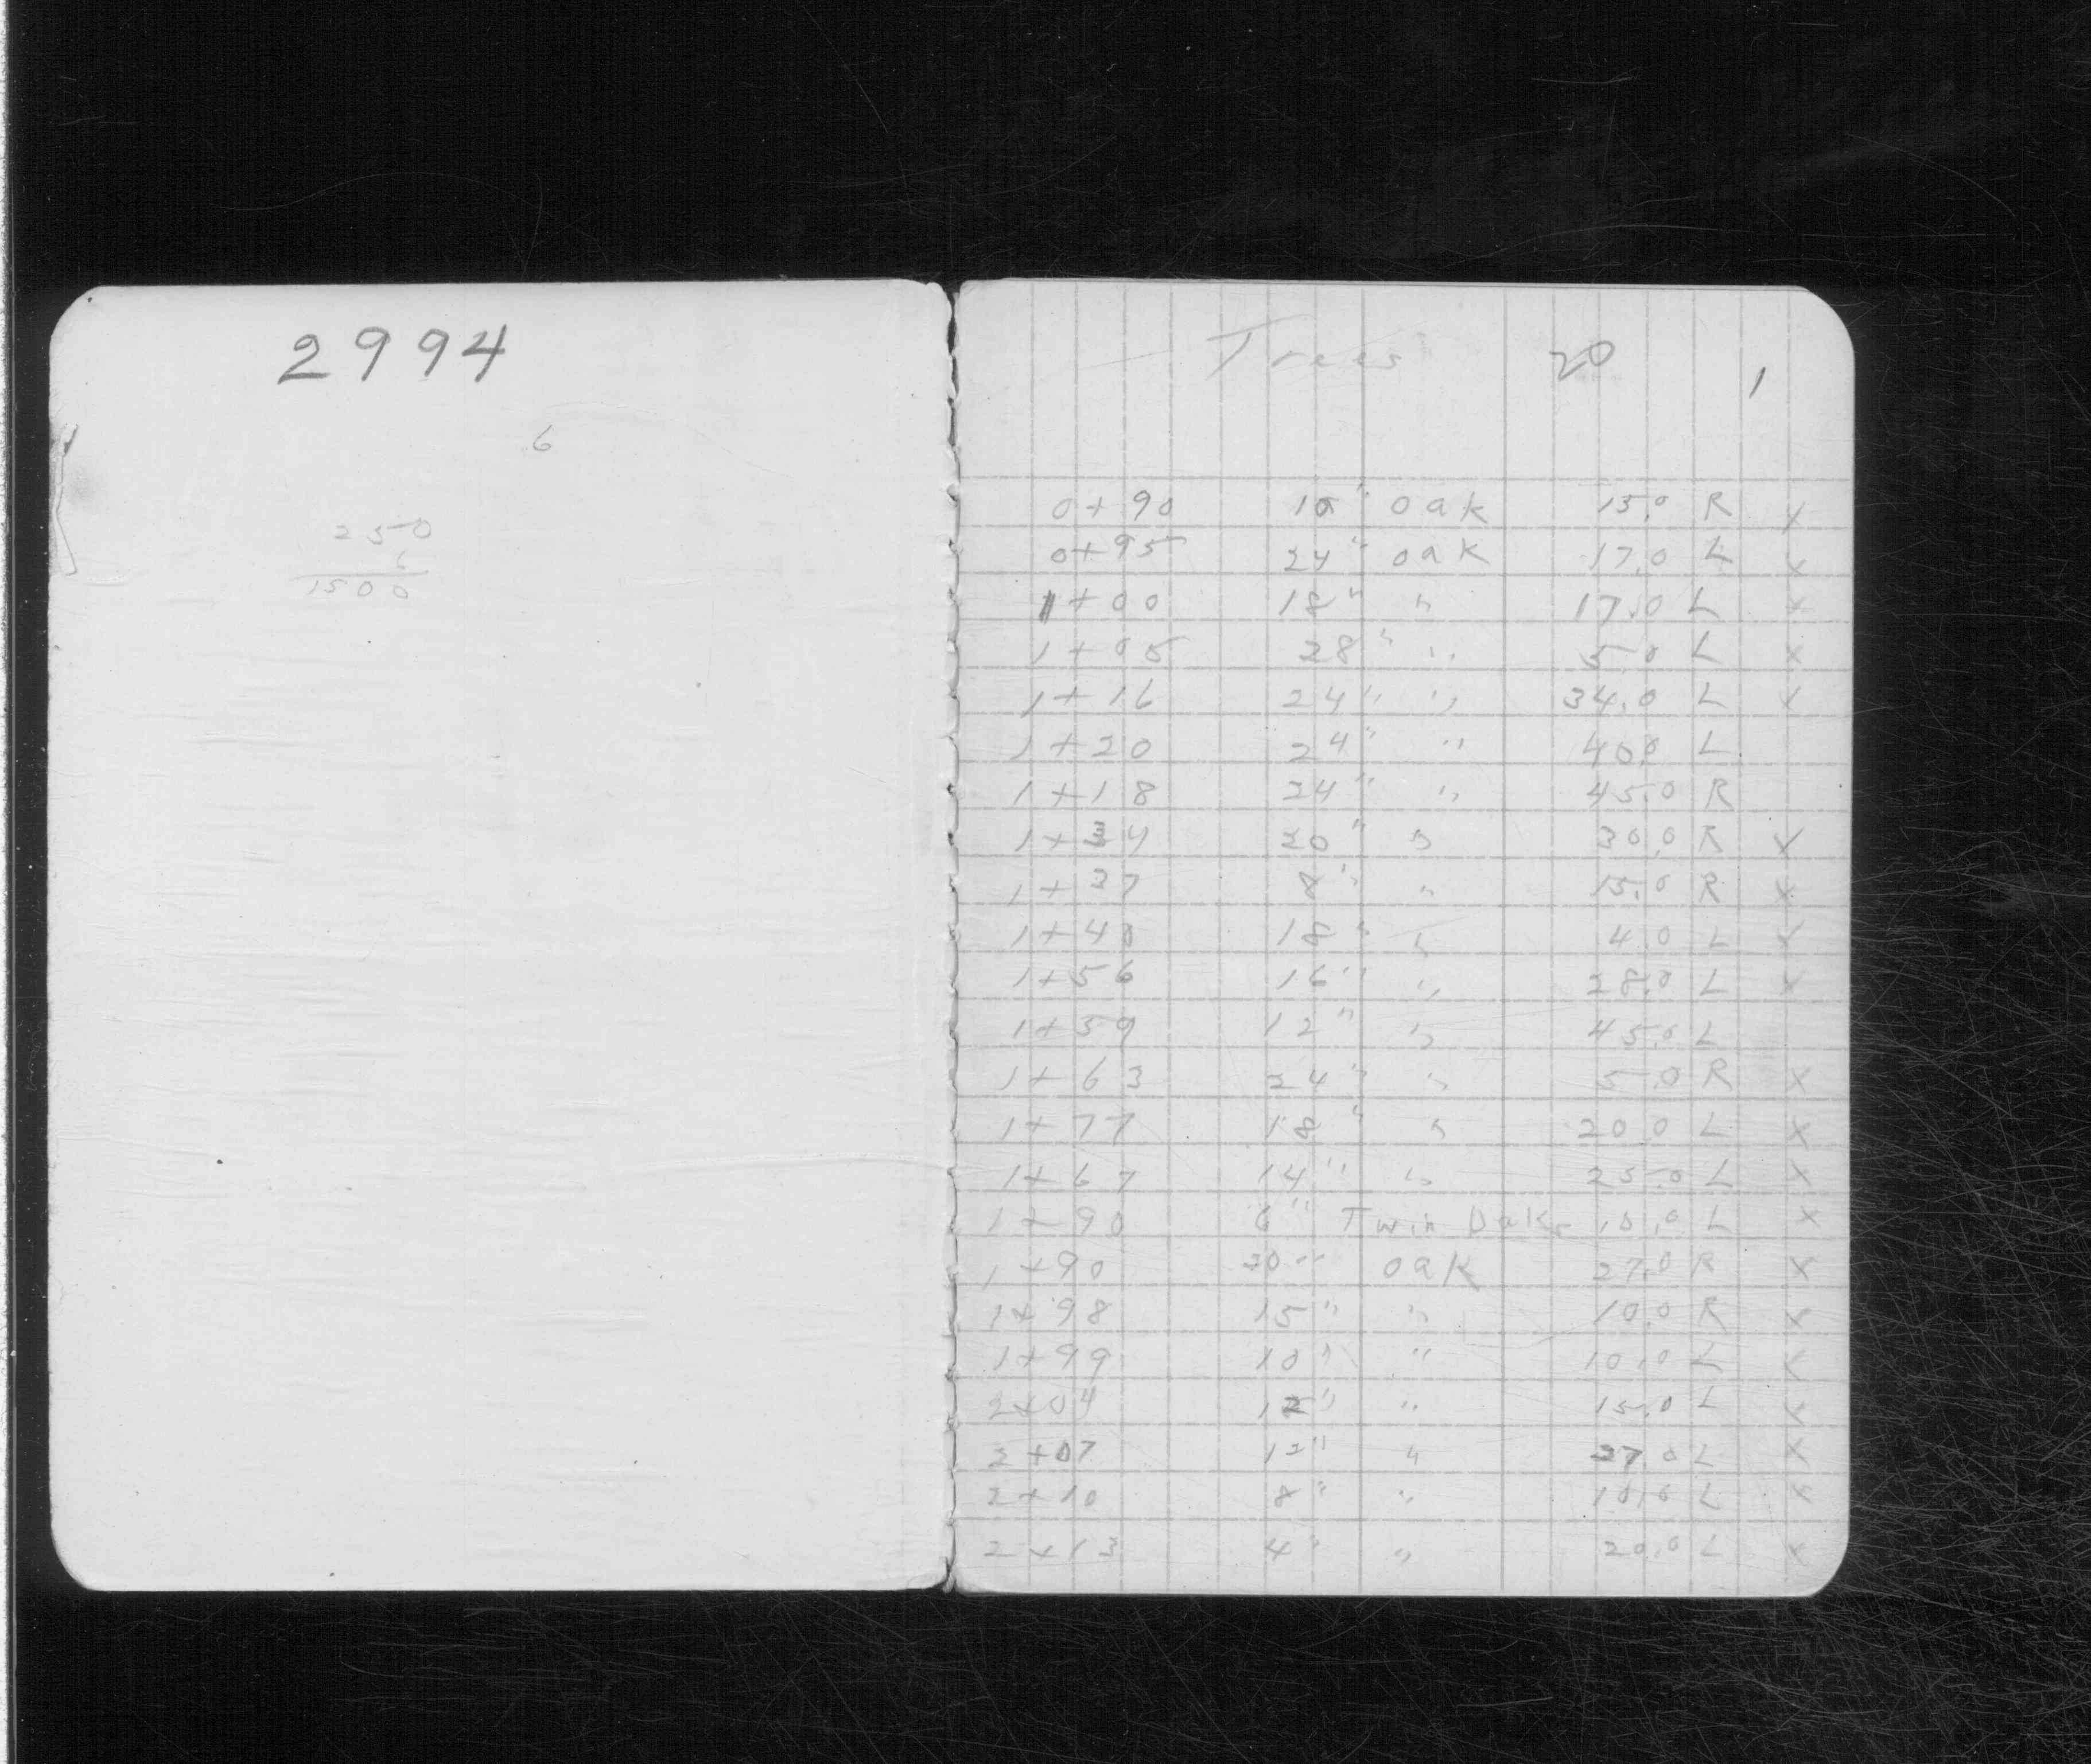 2994
6
250
6
1500
Trees 20 1
0+90 10" oak 15.0 R x
0+95 24" oak 17.0 L x
1+00 18" " 17.0 L x
1+05 28" " 5.0 L x
1+16 24" " 34.0 L x
1+20 24" " 40.0 L
1+18 24" " 45.0 R
1+34 20" " 30.0 R x
1+37 8" " 15.0 R x
1+40 18" " 4.0 L x
1+56 16" " 28.0 L x
1+59 12" " 45.0 L
1+63 24" " 5.0 R x
1+77 18" " 20.0 L x
1+67 14" " 25.0 L x
1+90 6" Twin Oak 10.0 L x
1+90 30" oak 27.0 R x
1+98 15" " 10.0 R x
1+99 10" " 10.0 L x
2+04 12" " 15.0 L x
2+07 12" " 27.0 L x
2+10 8" " 10.0 L x
2+13 4" " 20.0 L x